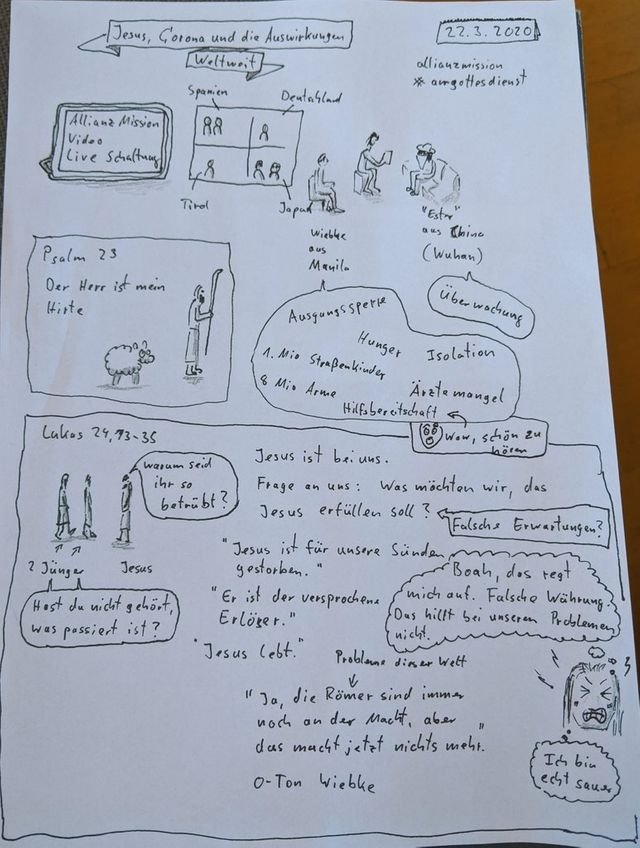 Jesus, Corona und die Auswirkungen
Weltweit
22.3.2020
allianzmission
* amgottesdienst
Allianz Mission
Video
Live Schaltung
Spanien
Deutschland
Tirol
Japan
Wiebke
aus
Manila
"Ester"
aus China
(Wuhan)
Überwachung
Psalm 23
Der Herr ist mein
Hirte
Ausgangssperre
Hunger
Isolation
1. Mio Straßenkinder
8 Mio Arme
Ärztemangel
Hilfsbereitschaft
Wow, schön zu
hören
Lukas 24,13-35
warum seid
ihr so
betrübt?
2 Jünger
Jesus
Hast du nicht gehört,
was passiert ist?
Jesus ist bei uns.
Frage an uns: Was möchten wir, das
Jesus erfüllen soll?
Falsche Erwartungen?
"Jesus ist für unsere Sünden
gestorben."
"Er ist der versprochene
Erlöser."
"Jesus lebt."
Boah, das regt
mich auf. Falsche Währung.
Das hilft bei unseren Problemen
nicht.
Probleme dieser Welt
"Ja, die Römer sind immer
noch an der Macht, aber
das macht jetzt nichts mehr."
O-Ton Wiebke
Ich bin
echt sauer